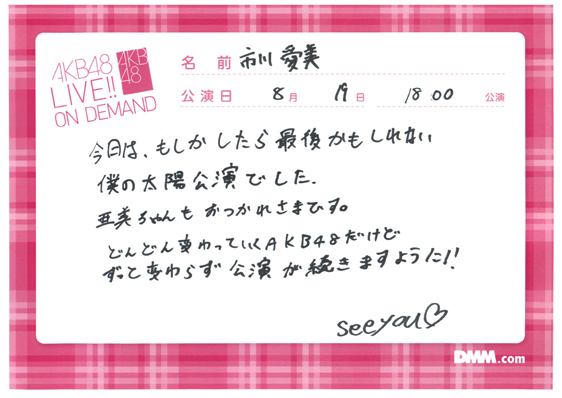 AKB48
LIVE!!
ON DEMAND
AKB
48
名 前 市川 愛美
公演日 8月 19日 18:00 公演
今日は、もしかしたら最後かもしれない
僕の太陽公演でした.
亜美ちゃんもおつかれさまです。
どんどん変わっていくAKB48だけど
ずっと変わらず公演が続きますように!!
see you♡
DMM.com